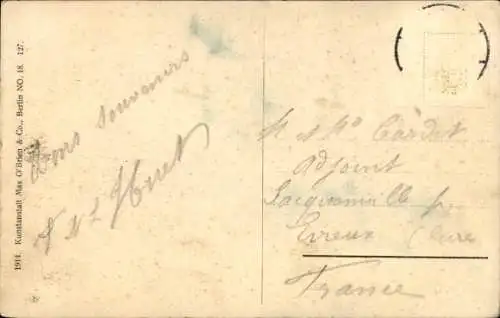 1914. Kunstanstalt Max O'Brien & Co., Berlin NO. 18. 127.
Bons souvenirs
Huet
M & Me Cardet
Adjoint
Jacquenville pr
Evreux (Eure
France